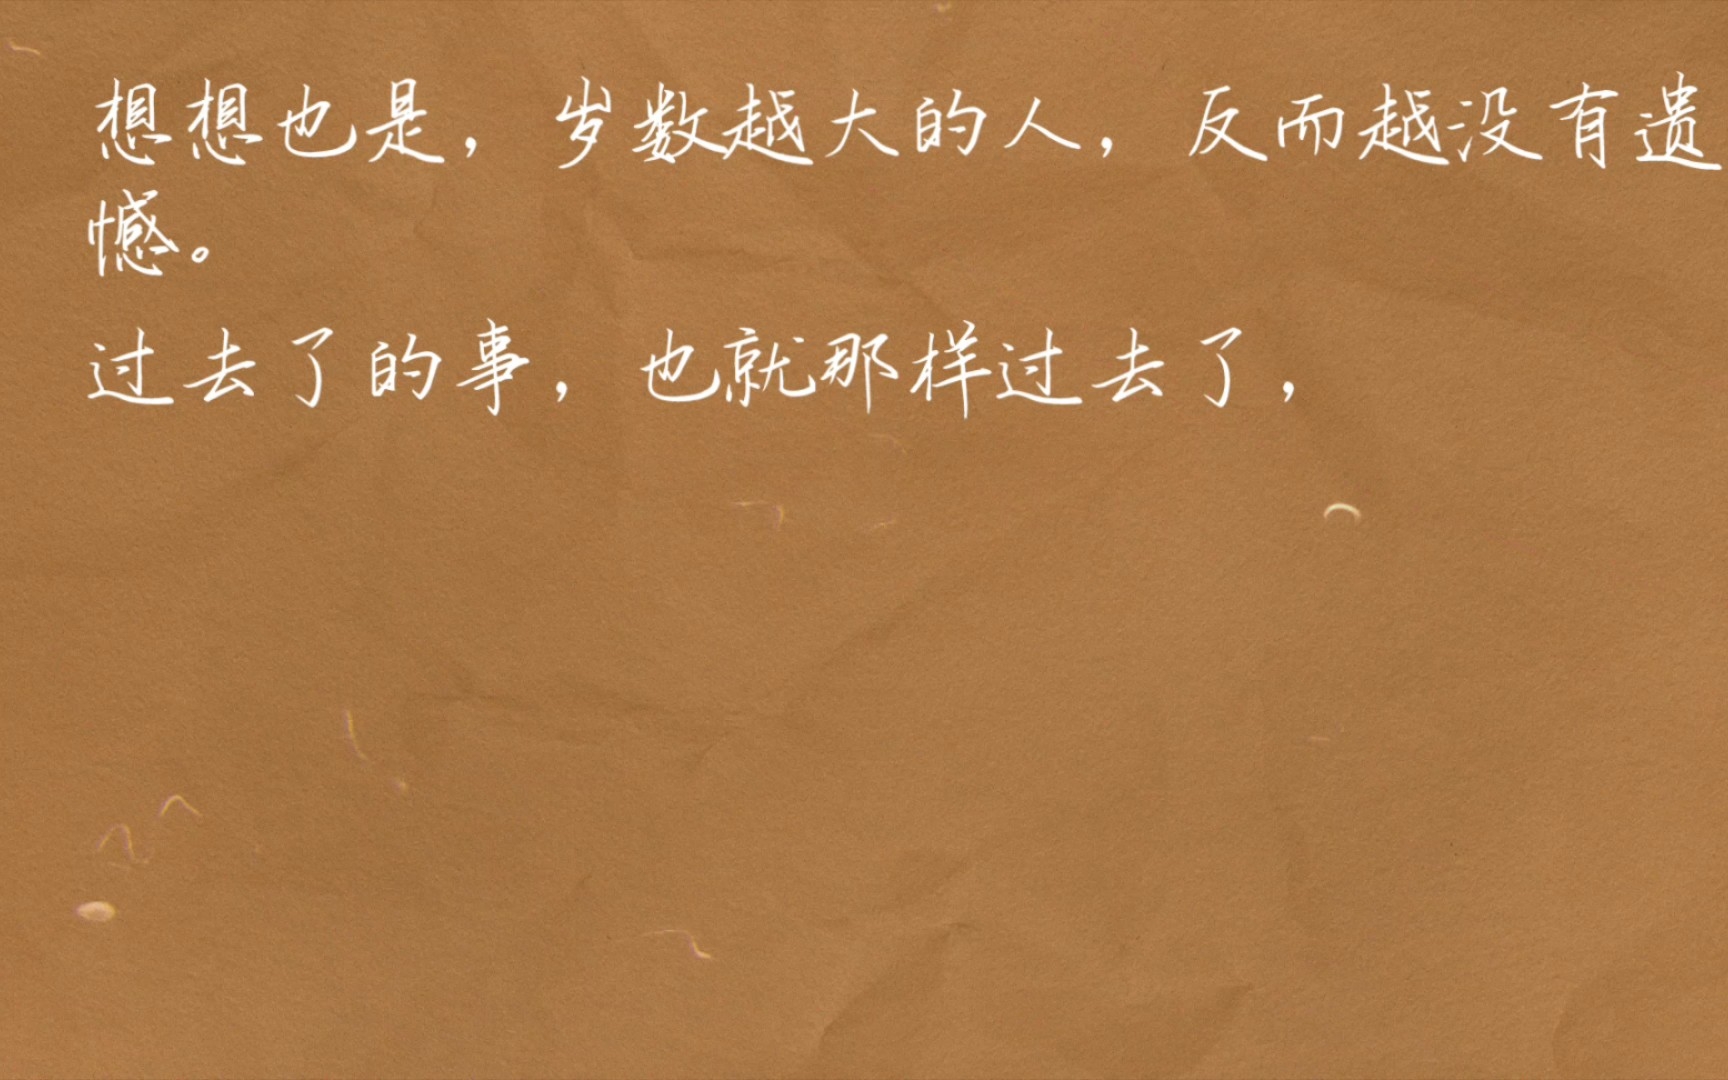 想想也是，岁数越大的人，反而越没有遗
憾。
过去了的事，也就那样过去了，